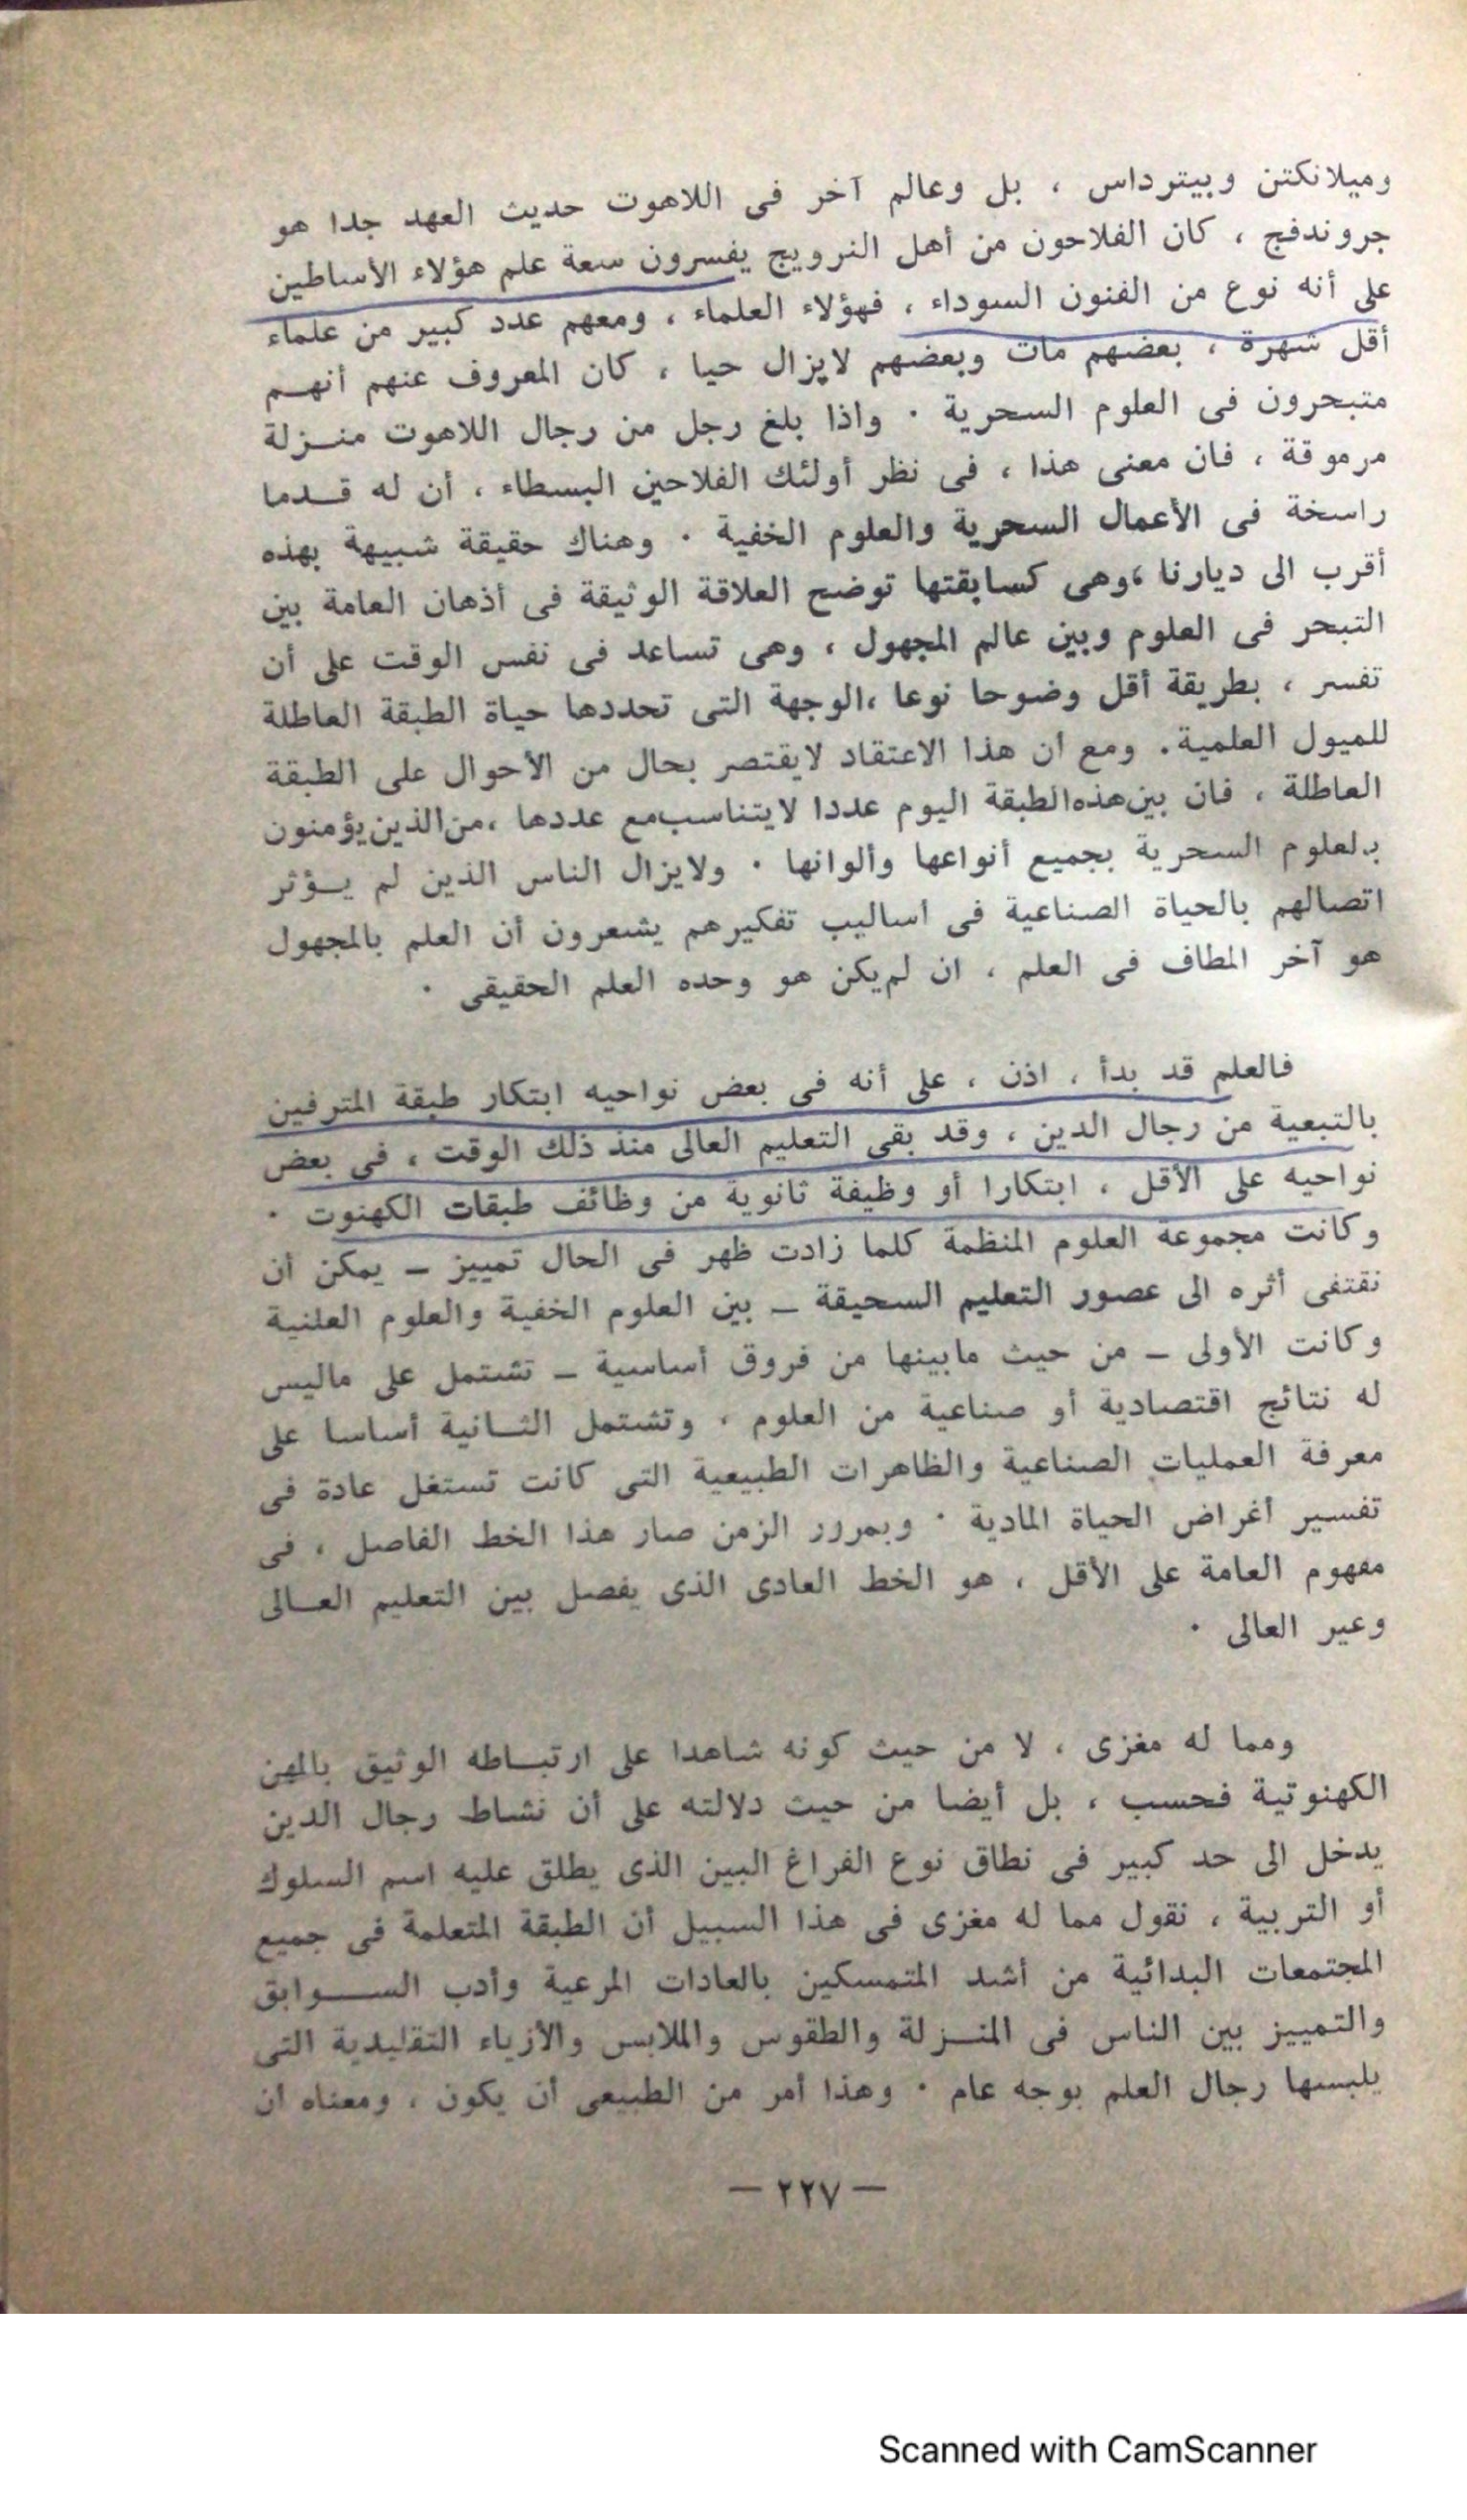 وميلانكتن وبيترداس ، بل وعالم آخر فى اللاهوت حديث العهد جدا هو
جروندفج ، كان الفلاحون من أهل النرويج يفسرون سعة علم هؤلاء الأساطين
على أنه نوع من الفنون السوداء ، فهؤلاء العلماء ، ومعهم عدد كبير من علماء
أقل شهرة ، بعضهم مات وبعضهم لايزال حيا ، كان المعروف عنهم أنهـم
متبحرون فى العلوم السحرية . واذا بلغ رجل من رجال اللاهوت منـزلة
مرموقة ، فان معنى هذا ، فى نظر أولئك الفلاحين البسطاء ، أن له قـدما
راسخة فى الأعمال السحرية والعلوم الخفية . وهناك حقيقة شبيهة بهذه
أقرب الى ديارنا ،وهى كسابقتها توضح العلاقة الوثيقة فى أذهان العامة بين
التبحر فى العلوم وبين عالم المجهول ، وهى تساعد فى نفس الوقت على أن
تفسر ، بطريقة أقل وضوحا نوعا ،الوجهة التى تحددها حياة الطبقة العاطلة
للميول العلمية. ومع ان هذا الاعتقاد لايقتصر بحال من الأحوال على الطبقة
العاطلة ، فان بين هذه الطبقة اليوم عددا لايتناسب مع عددها ،من الذين يؤمنون
بالعلوم السحرية بجميع أنواعها وألوانها . ولايزال الناس الذين لم يـؤثر
اتصالهم بالحياة الصناعية فى أساليب تفكيرهم يشعرون أن العلم بالمجهول
هو آخر المطاف فى العلم ، ان لم يكن هو وحده العلم الحقيقى .
فالعلم قد بدأ ، اذن ، على أنه فى بعض نواحيه ابتكار طبقة المترفين
بالتبعية من رجال الدين ، وقد بقى التعليم العالى منذ ذلك الوقت ، فى بعض
نواحيه على الأقل ، ابتكارا أو وظيفة ثانوية من وظائف طبقات الكهنوت .
وكانت مجموعة العلوم المنظمة كلما زادت ظهر فى الحال تمييز ــ يمكن أن
نقتفى أثره الى عصور التعليم السحيقة ــ بين العلوم الخفية والعلوم العلنية
وكانت الأولى ــ من حيث مابينها من فروق أساسية ــ تشتمل على ماليس
له نتائج اقتصادية أو صناعية من العلوم ، وتشتمل الثـانية أساسا على
معرفة العمليات الصناعية والظاهرات الطبيعية التى كانت تستغل عادة فى
تفسير أغراض الحياة المادية . وبمرور الزمن صار هذا الخط الفاصل ، فى
مفهوم العامة على الأقل ، هو الخط العادى الذى يفصل بين التعليم العـالى
وغير العالى .
ومما له مغزى ، لا من حيث كونه شاهدا على ارتبـاطه الوثيق بالمهن
الكهنوتية فحسب ، بل أيضا من حيث دلالته على أن نشاط رجال الدين
يدخل الى حد كبير فى نطاق نوع الفراغ البين الذى يطلق عليه اسم السلوك
أو التربية ، نقول مما له مغزى فى هذا السبيل أن الطبقة المتعلمة فى جميع
المجتمعات البدائية من أشد المتمسكين بالعادات المرعية وأدب الســوابق
والتمييز بين الناس فى المنـزلة والطقوس والملابس والأزياء التقليدية التى
يلبسها رجال العلم بوجه عام . وهذا أمر من الطبيعى أن يكون ، ومعناه ان
— ٢٢٧ —
Scanned with CamScanner